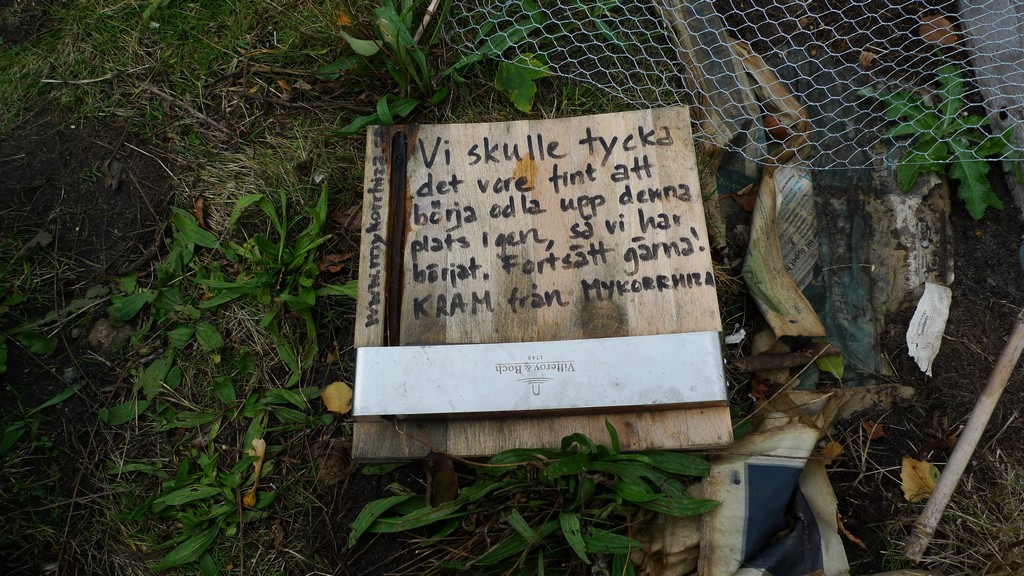 Vi skulle tycka
det vore fint att
börja odla upp denna
plats igen, så vi har
börjat. Fortsätt gärna!
KRAM från MYKORRHIZA
www.mykorrhiza
Villeroy & Boch
1748